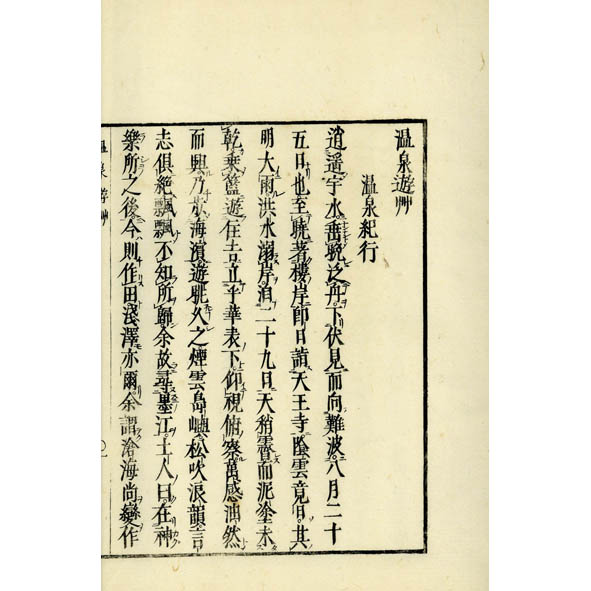 温泉遊艸
温泉紀行
逍遥宇水垂晩泛舟下伏見而向難波八月二十
五日也至曉著樓岸即日詣天王寺陰雲竟日其
明大雨洪水溺岸洎二十九日天稍霽而泥塗未
乾乗籃遊住吉立乎華表下仰視俯察萬感油然
而興乃於海濱遊眺久之煙雲島嶼松吹浪韻言
志倶絶飄飄不知所歸余故尋墨江土人曰在神
樂所之後今則作田淺澤亦爾余謂滄海尚變作
温泉遊艸